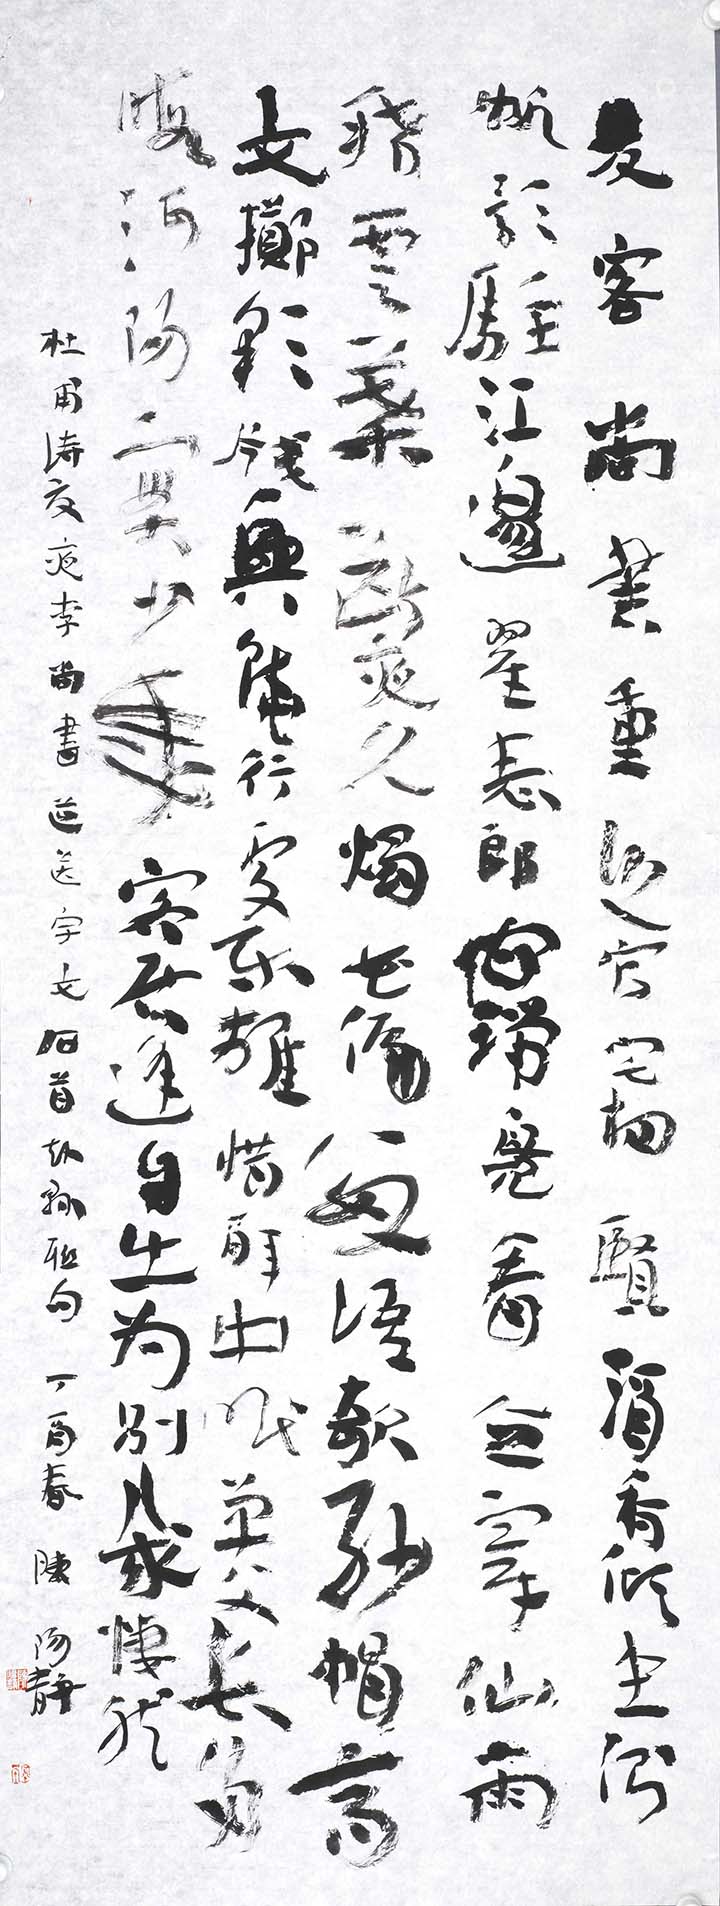 愛客尚書重之官宅相賢酒香傾坐側
帆影駐江邊翟表郎官瑞鳧看令宰仙雨
稀雲葉斷夜久燭花偏數語欹紗帽高
文擲彩箋興饒行處樂離惜醉中眠單父長多
暇河陽實少年客居逢自出為別幾悽然
杜甫詩夏夜李尚書筵送宇文石首赴縣聯句 丁酉春 陳陽靜